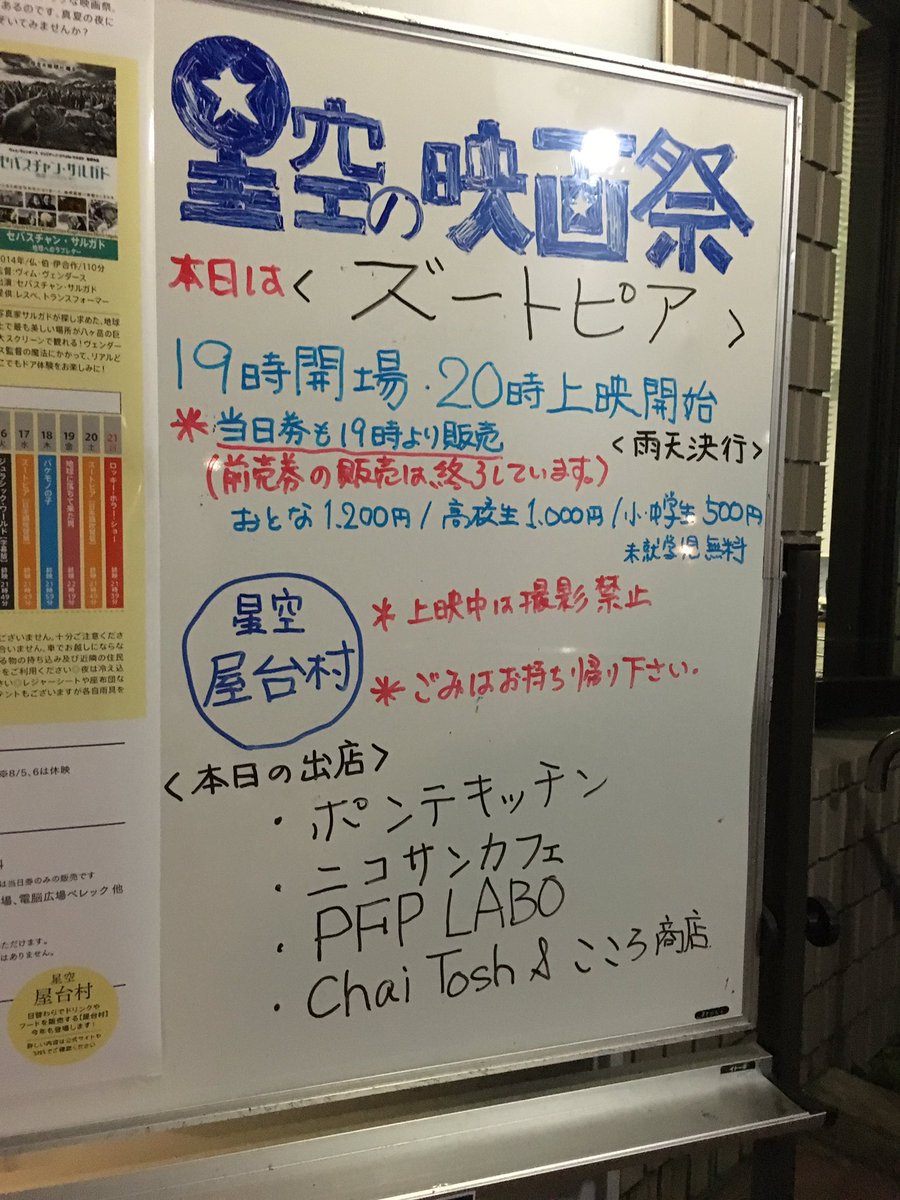 星空の映画祭
本日は<ズートピア>
19時開場・20時上映開始
*当日券も19時より販売
<雨天決行>
(前売券の販売は、終了しています。)
おとな1.200円/高校生1.000円/小・中学生500円
未就学児無料
星空
屋台村
*上映中は撮影禁止
*ごみはお持ち帰り下さい。
<本日の出店>
・ポンテキッチン
・ニコサンカフェ
・PFP LABO
・Chai Tosh & こころ商店
な映画祭。
あるのです。真夏の夜に
ぞいてみませんか?
セバスチャン・サルガド
セバスチャン・サルガド
地球へのラブレター
2014年/仏・伯・伊合作/110分
監督:ヴィム・ヴェンダース
出演:セバスチャン・サルガド
提供:レスペ、トランスフォーマー
写真家サルガドが探し求めた、地球
上で最も美しい場所が八ヶ岳の巨
大スクリーンで観れる!ヴェンダー
ス監督の魔法にかかって、リアルど
こでもドア体験をお楽しみに!
6 17 18 19 20 21
火 水 木 金 土 日
ジュラシック・ワールド[字幕版]
ズートピア[日本語吹替版]
バケモノの子
地球に落ちて来た男
ズートピア[日本語吹替版]
ロッキー・ホラー・ショー
ございません。十分ご注意くださ
合いません。車でお越しにならな
る物の持ち込み及び近隣の住民
をご利用ください◎夜は冷え込
さい◎レジャーシートや座布団な
テントもございますが各自雨具を
※8/5、6は休映
は当日券のみの販売です
場、電脳広場ペレック 他
ただけます。
はありません。
星空
屋台村
日替わりでドリンクや
フードを販売する【屋台村】
今年も登場します!
詳しい内容は公式サイトや
SNSでご確認ください